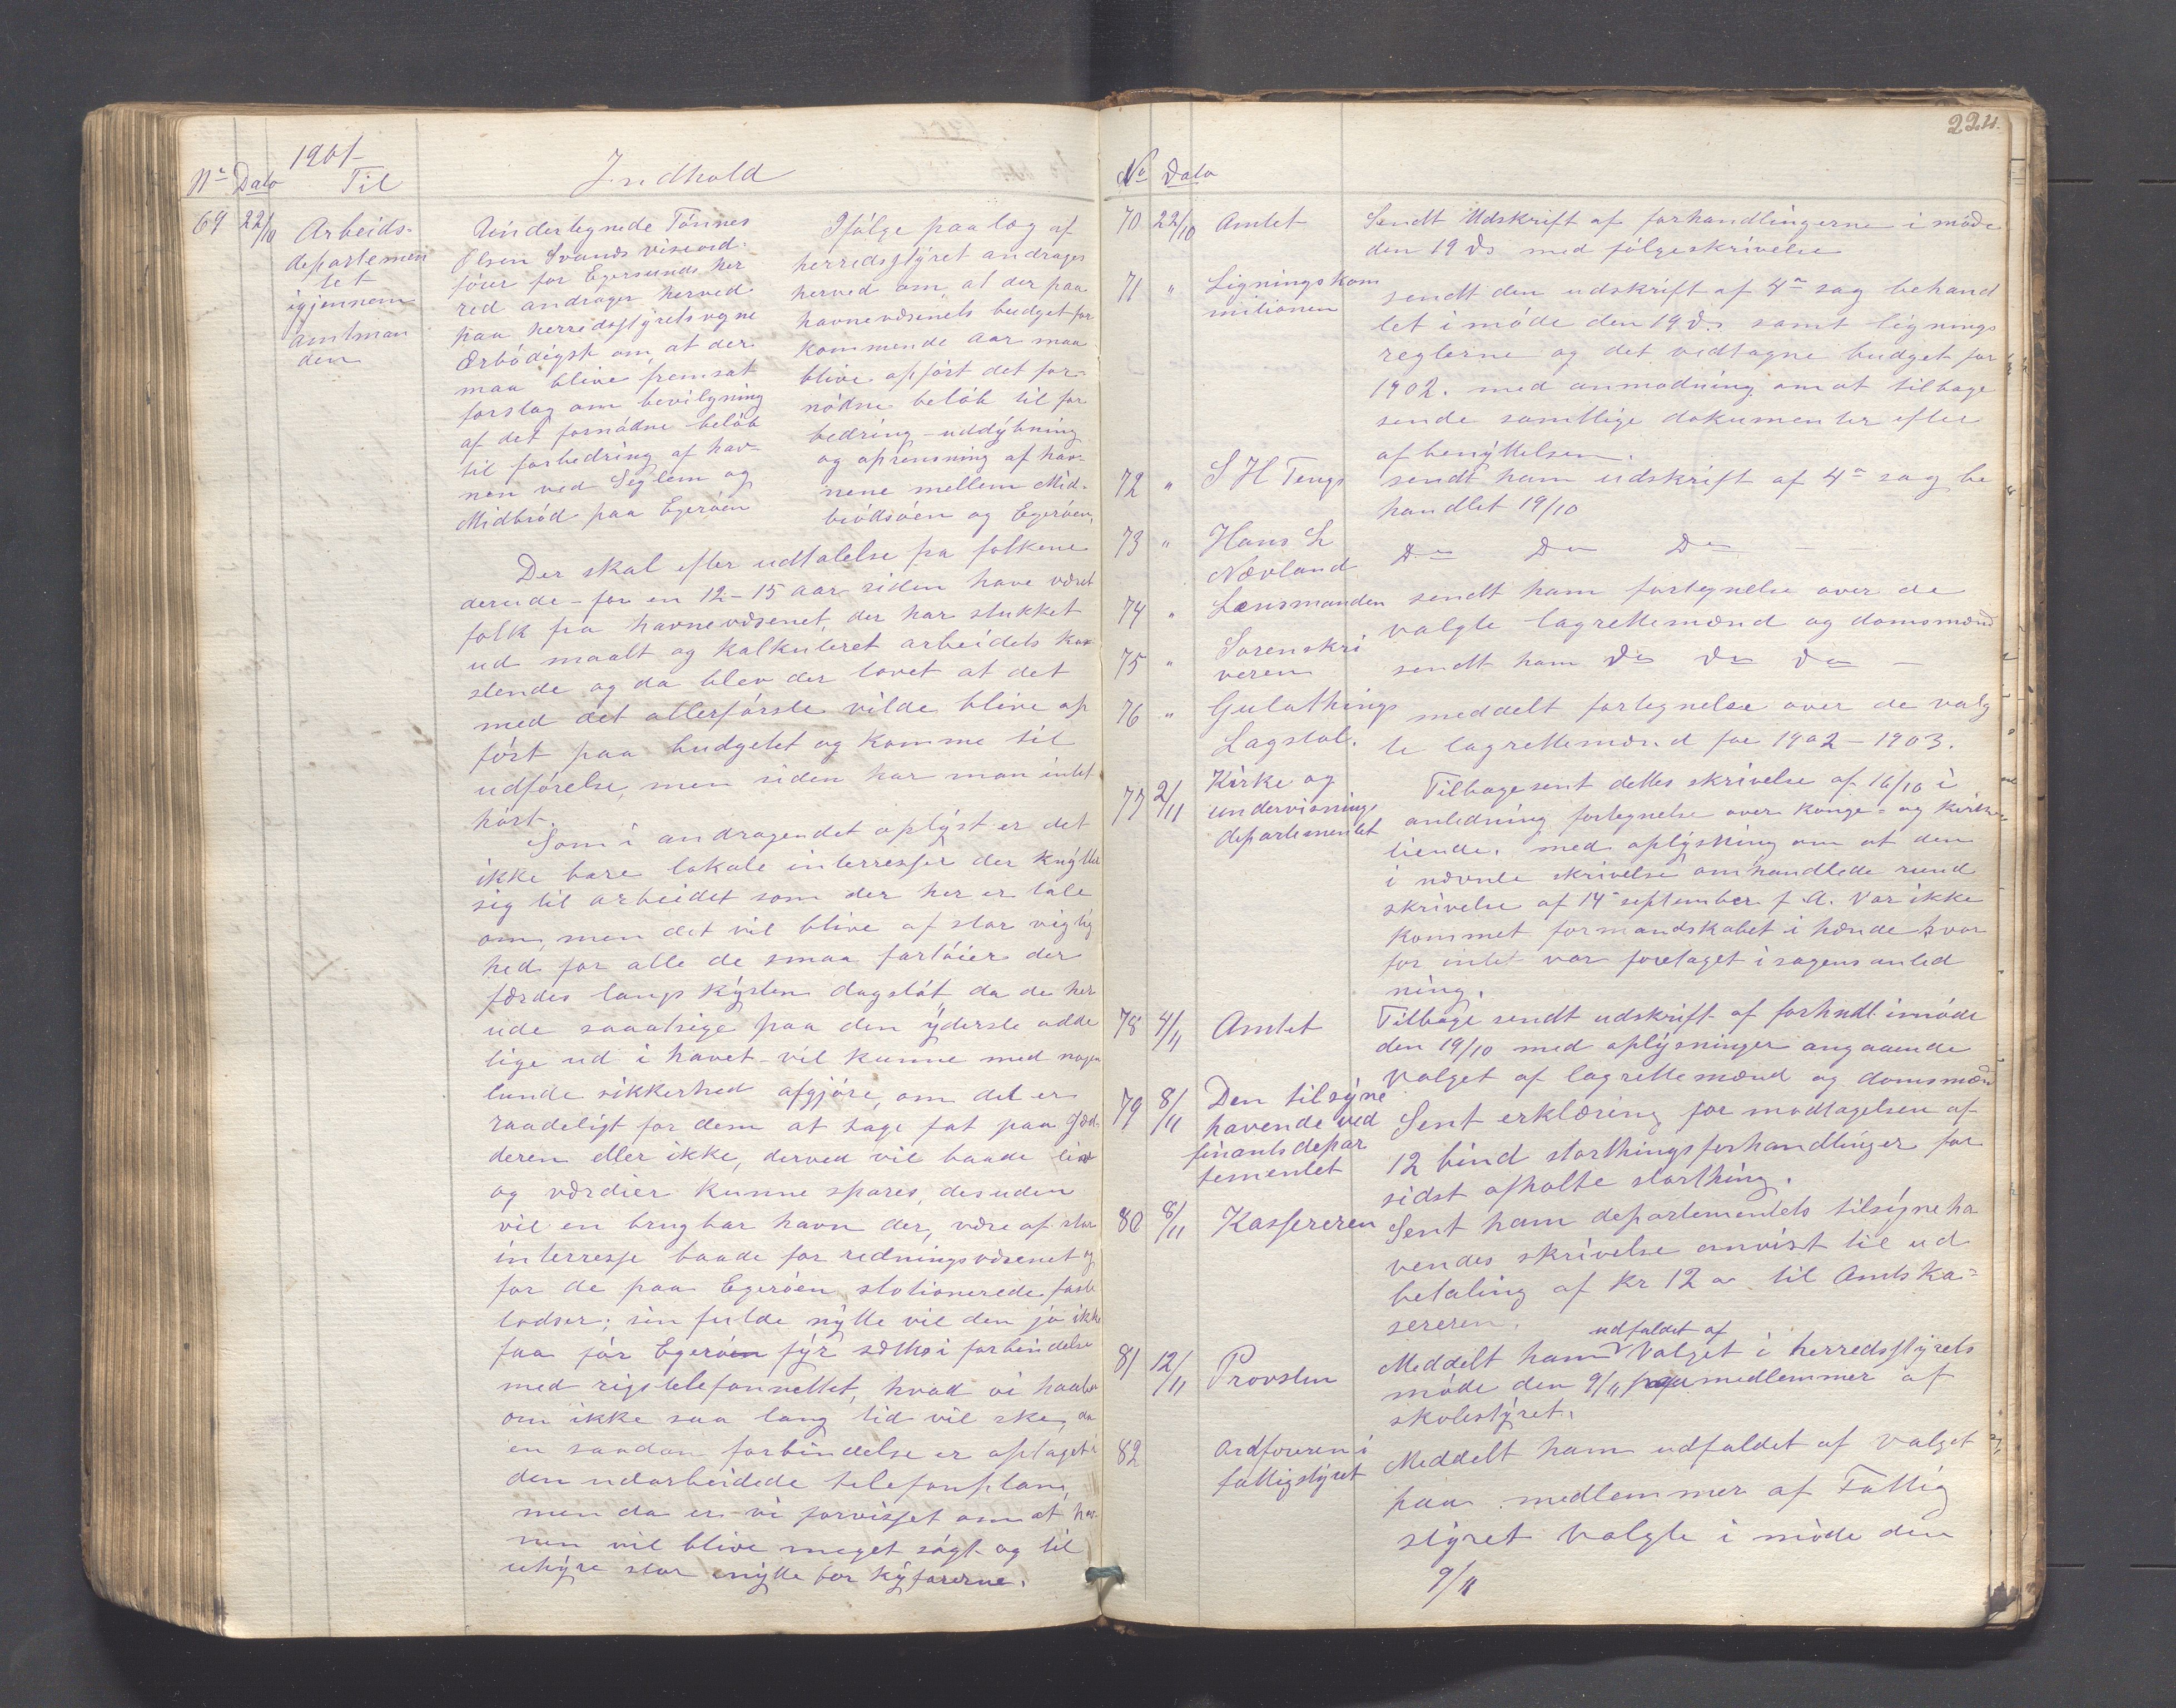 1901
No Dato Til Indhold
69 22/10 Arbeids-
departemen
tet
igjennem
amtman
den
Undertegnede Tönnes
Olsen Svands viseord-
förer for Egersunds her
red andrager herved
paa herredsstyrets vegne
Ærbödigst om at der
maa blive fremsat
forslag om bevilgning
af det fornödne belöb
til forbedring af hav-
nen ved Seglem og
Midbröd paa Egeröen
Ifölge paalæg af
herredsstyret andrages
herved om at der paa
havnevæsenets budget for
kommende aar maa
blive opfört det for-
nödne belöb til for
bedring - uddybning
og oprensning af hav-
nene mellem Mid-
brödsöen og Egeröen,
Der skal efter udtalelse fra folkene
derude - for en 12-15 aar siden have været
folk fra havnevæsenet, der har stukket
ud maalt og kalkuleret arbeidets kos
stende og da blev der lovet at det
med det allerförste vilde blive op
fört paa budgetet og komme til
udförelse, men siden har man intet
hört.
Som i andragendet oplyst er det
ikke bare lokale interresser der knytter
sig til arbeidet som der her er tale
om, men det vil blive af stor vigtig
hed for alle de smaa fartöier der
færdes langs kysten dagstöt da de her
ude saaatsige paa den yderste odde
lige ud i havet - vil kunne med nogen
lunde sikkerhed afgjöre, om det er
raadeligt for dem at tage fat paa Jæd-
deren eller ikke, derved vil baade liv
og værdier kunne spares, desuden
vil en brugbar havn der, være af stor
interresse baade for redningsvæsenet og
for de paa Egeröen stationerede faste
lodser; sin fulde nytte vil den jo ikke
faa för Egeröen fyr sættes i forbindelse
med rigstelefonnettet, hvad vi haaber
om ikke saa lang tid vil ske, da
en saadan forbindelse er optaget i
den udarbeidede telefonplan,
men da er vi forvisset om at hav-
nen vil blive meget sögt og til
uhyre stor nytte for kyfarerne.
224.
No Dato
70 22/10 Amtet Sendt Udskrift af forhandlingerne i möde
den 19 ds med fölgeskrivelse
71 " Ligningskom
mitionen
sendt den udskrift af 4a sag behand
let i möde den 19 ds. samt lignings
reglerne og det vedtagne budget for
1902. med anmodning om at tilbage
sende samtlige dokumenter efter
afbenyttelsen.
72 " S H Tengs sendt ham udskrift af 4a sag be
handlet 19/10
73 " Hans L
Nævland
Do Do Do -
74 " Lensmanden sendt ham fortegnelse over de
valgte lagrettemænd og domsmænd
75 " Sorenskri
veren
sendt ham Do Do Do -
76 " Gulathings
Lagstol.
meddelt fortegnelse over de valg
te lagrettemænd for 1902 - 1903.
77 2/11 Kirke og
undervisnings
departementet
Tilbagesent dettes skrivelse af 16/10 i
anledning fortegnelse over konge- og kirke
tiende. med oplysning om at den
i nævnte skrivelse omhandlede rund
skrivelse af 14 september f. A. var ikke
kommet formandskabet i hænde hvor
for intet var foretaget i sagens anled
ning.
78 4/11 Amtet Tilbage sendt udskrift af forhndl i möde
den 19/10 med oplysninger angaaende
Valget af lagrettemænd og domsmænd
79 8/11 Den tilsyne
havende ved
finantsdepar
tementet
Sent erklæring for modtagelsen af
12 bind storthingsforhandlinger for
sidst afholte storthing.
80 8/11 Kassereren Sent ham departementets tilsyneha
vendes skrivelse anvist til ud
betaling af Kr 12 00 til Amtska-
sereren.
81 12/11 Provsten Meddelt ham udfaldet af Valget i herredsstyrets
möde den 9/11 paa medlemmer af
skolestyret.
82 Ordföreren i
fattigstyret
Meddelt ham udfaldet af valget
paa medlemmer af Fattig
styret valgte i möde den
9/11